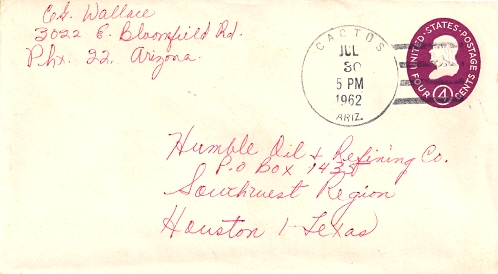 C.G. Wallace
3022 E. Bloomfield Rd.
Phx. 22, Arizona.
CACTUS
JUL
30
5 PM
1962
ARIZ.
UNITED·STATES·POSTAGE
FOUR 4 CENTS
Humble Oil & Refining Co.
P.O Box
Southwest Region
Houston 1 Texas